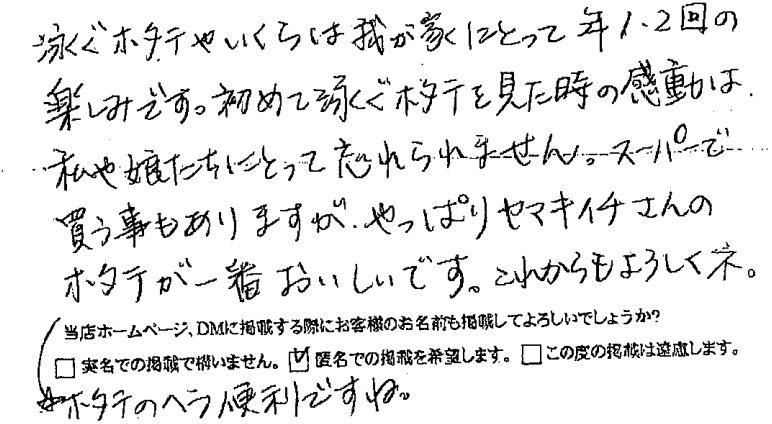 泳ぐホタテやいくらは我が家にとって年1.2回の
楽しみです。初めて泳ぐホタテを見た時の感動は、
私や娘たちにとって忘れられません。スーパーで
買う事もありますが、やっぱりヤマキイチさんの
ホタテが一番おいしいです。これからもよろしくネ。
当店ホームページ、DMに掲載する際にお客様のお名前も掲載してよろしいでしょうか?
□ 実名での掲載で構いません。 ☑ 匿名での掲載を希望します。 □ この度の掲載は遠慮します。
*ホタテのヘラ便利ですね。